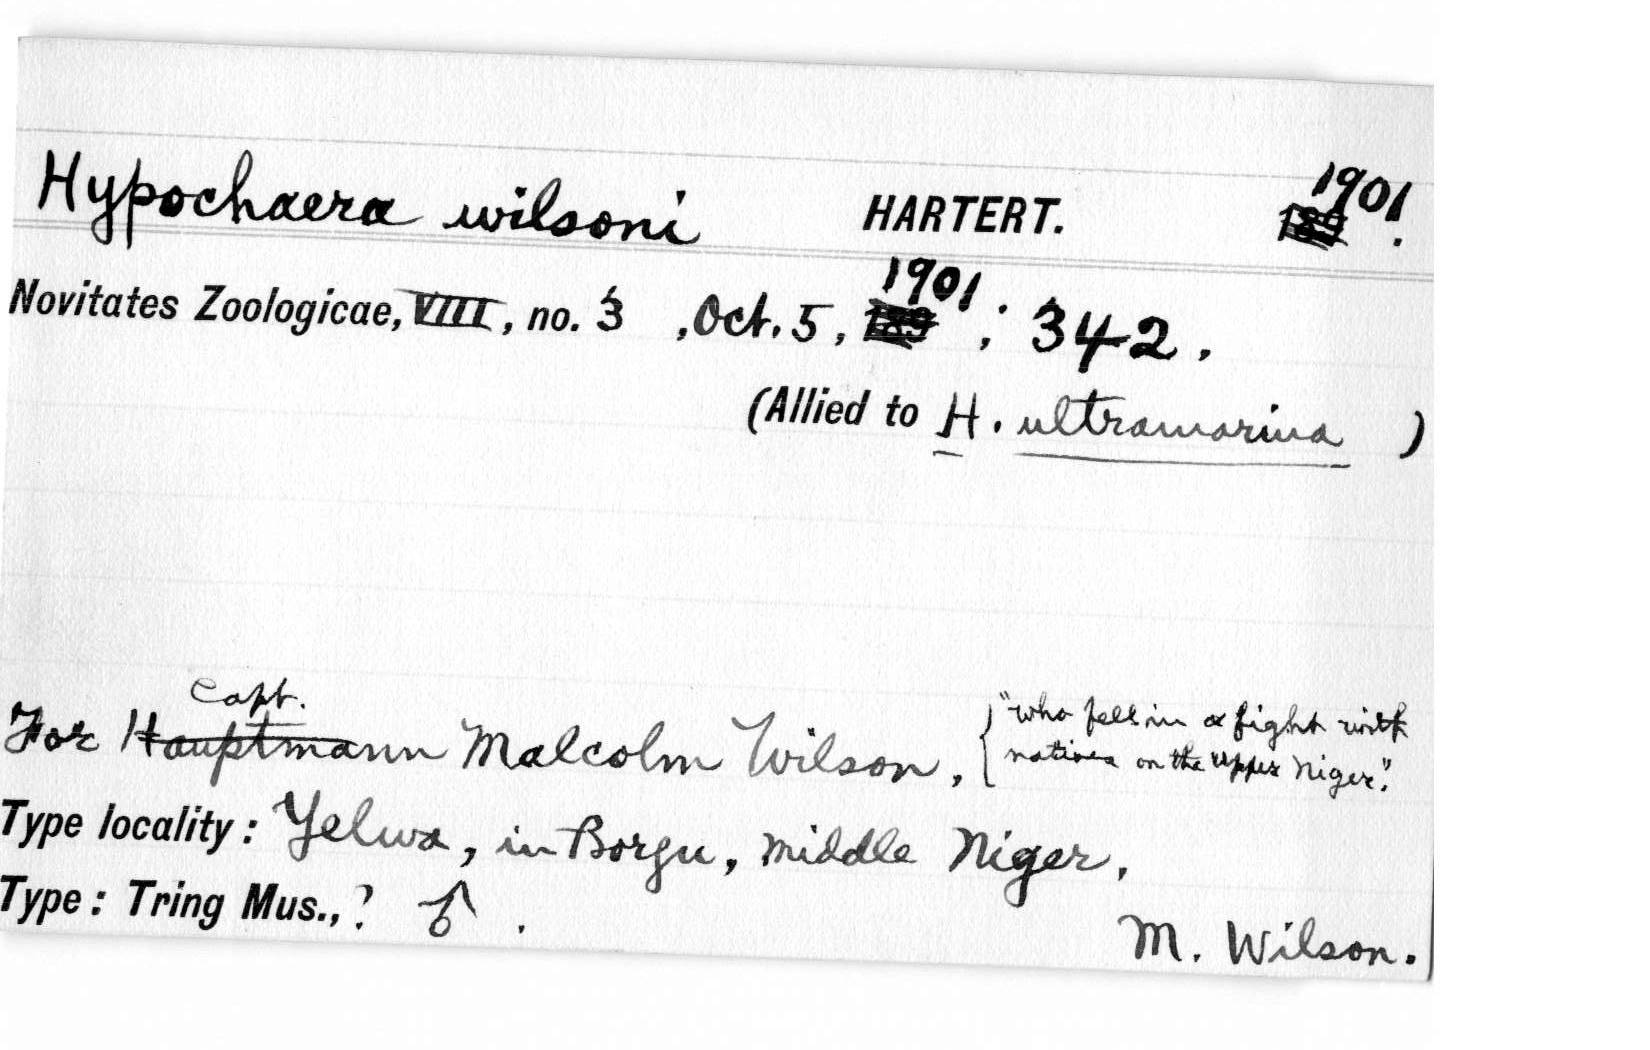 Hypochaera wilsoni HARTERT. 1901.
Novitates Zoologicae, VIII, no. 3, Oct. 5, 1901; 342.
(Allied to H. ultramarina)
Capt.
For Hauptmann Malcolm Wilson, { "who fell in a fight with
natives on the upper Niger".
Type locality: Yelwa, in Borgu, middle Niger,
Type: Tring Mus., ? ♂.
M. Wilson.